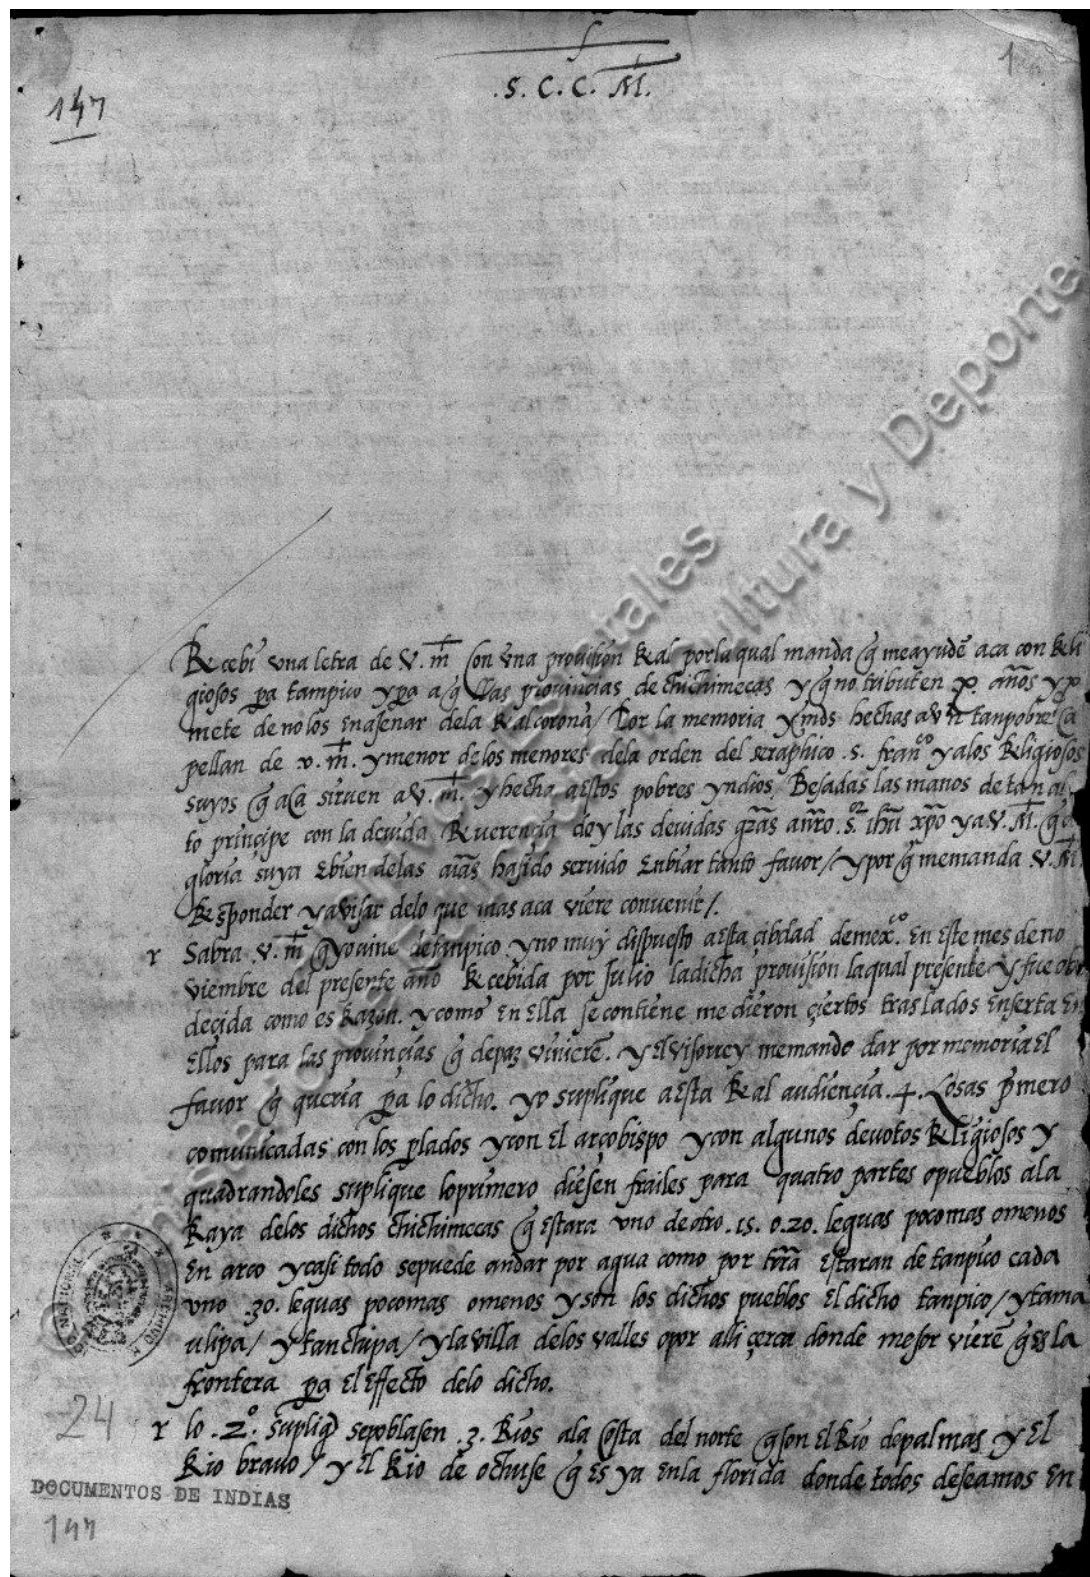 1
.S. C. C. M.
147
Recebi una letra de V. M. con una provision Real por la qual manda q̃ me ayudẽ aca con Reli
giosos pa tampico y pa aq̃llas provincias de chichimecas y q̃ no tributen .x. años y p
mete de no los enajenar de la Real corona / Por la memoria y mds hechas a vn tan pobre ca
pellan de v. M. y menor de los menores dela orden del seraphico .s. franco y alos Religiosos
suyos q̃ aca siruen a V. M. y hecha a estos pobres yndios. Besadas las manos de tan al
to principe con la deuida Reuerencia doy las deuidas grãs a nr̃o .s.or ihũ xp̃o y a V. M. q̃ a
gloria suya e bien delas aĩas ha sido seruido enbiar tanto fauor / y por q̃ me manda V. M.
Responder y avisar delo que mas aca viere convenir /.
r Sabra V. M. q̃ yo uine de tanpico y no muy dispuesto a esta cibdad de mexco. en este mes de no
viembre del presente año Recebida por Julio la dicha provision la qual presente y fue obe
decida como es Razon. y como en ella se contiene me dieron çiertos traslados inserta en
ellos para las provinçias q̃ de paz viniere͂. y el visorrey me mando dar por memoria el
fauor q̃ queria pa lo dicho. yo suplique a esta Real audiençia .4. Cosas p̃mero
comunicadas con los p̃lados y con el arçobispo y con algunos deuotos Religiosos y
quadrandoles suplique lo primero diesen frailes para quatro partes o pueblos ala
Raya delos dichos chichimecas q̃ estara uno de otro .15. o .20. leguas poco mas o menos
en arco y casi todo se puede andar por agua como por trr̃a estaran de tanpico cada
uno .30. leguas poco mas o menos y son los dichos pueblos el dicho tanpico / y tama
ulipa / y tanchipa / y la villa delos valles o por alli çerca donde mejor vierẽ q̃ es la
frontera pa el effecto delo dicho.
r lo .2º. supliq̃ se poblasen .3. Rios ala costa del norte q̃ son el Rio de palmas y el
Rio brauo / y el Rio de ochuse q̃ es ya en la florida donde todos deseamos en
24
DOCUMENTOS DE INDIAS
147